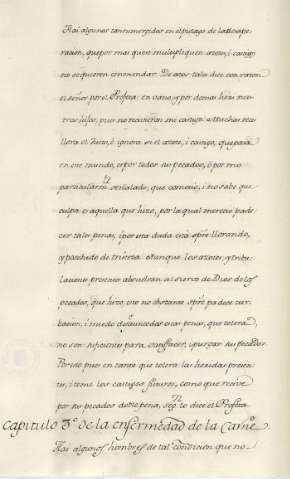 Hai algunos tan sumergidos en el pielago de la desespe-
racion, que por mas que se multipliquen azotes, i castigos
no se quieren enmendar. De estos tales dice con razon
el Señor por el Profeta: en vano, y por demas heri vues-
tros hijos, pues no recivieron mi castigo. Muchas veces
llora el Justo, è ignora si el azote, i castigo, que padece
en este mundo, es por todos sus pecados, ò por uno
particularmte señalado, que cometio, i no sabe que
culpa es aquella que hizo, por la qual merece pade-
cer tales penas, i por esta duda està spre llorando,
y pasmado de tristeza. Aunque los azotes, y tribu-
laciones presentes absuelvan al siervo de Dios de los
pecados, que hizo, esto no obstante spre padece tur-
bacion, i miedo de que estas penas, que tolera,
no son suficientes para satisfacer, i purgar sus pecados.
Porque pues en tanto que tolera las heridas presen-
tes, i teme los castigos futuros, como que recive
por sus pecados doble pena, segn lo dice el Profeta
Capitulo 3º de la enfermedad de la Carne.
Hai algunos hombres de tal condicion que no